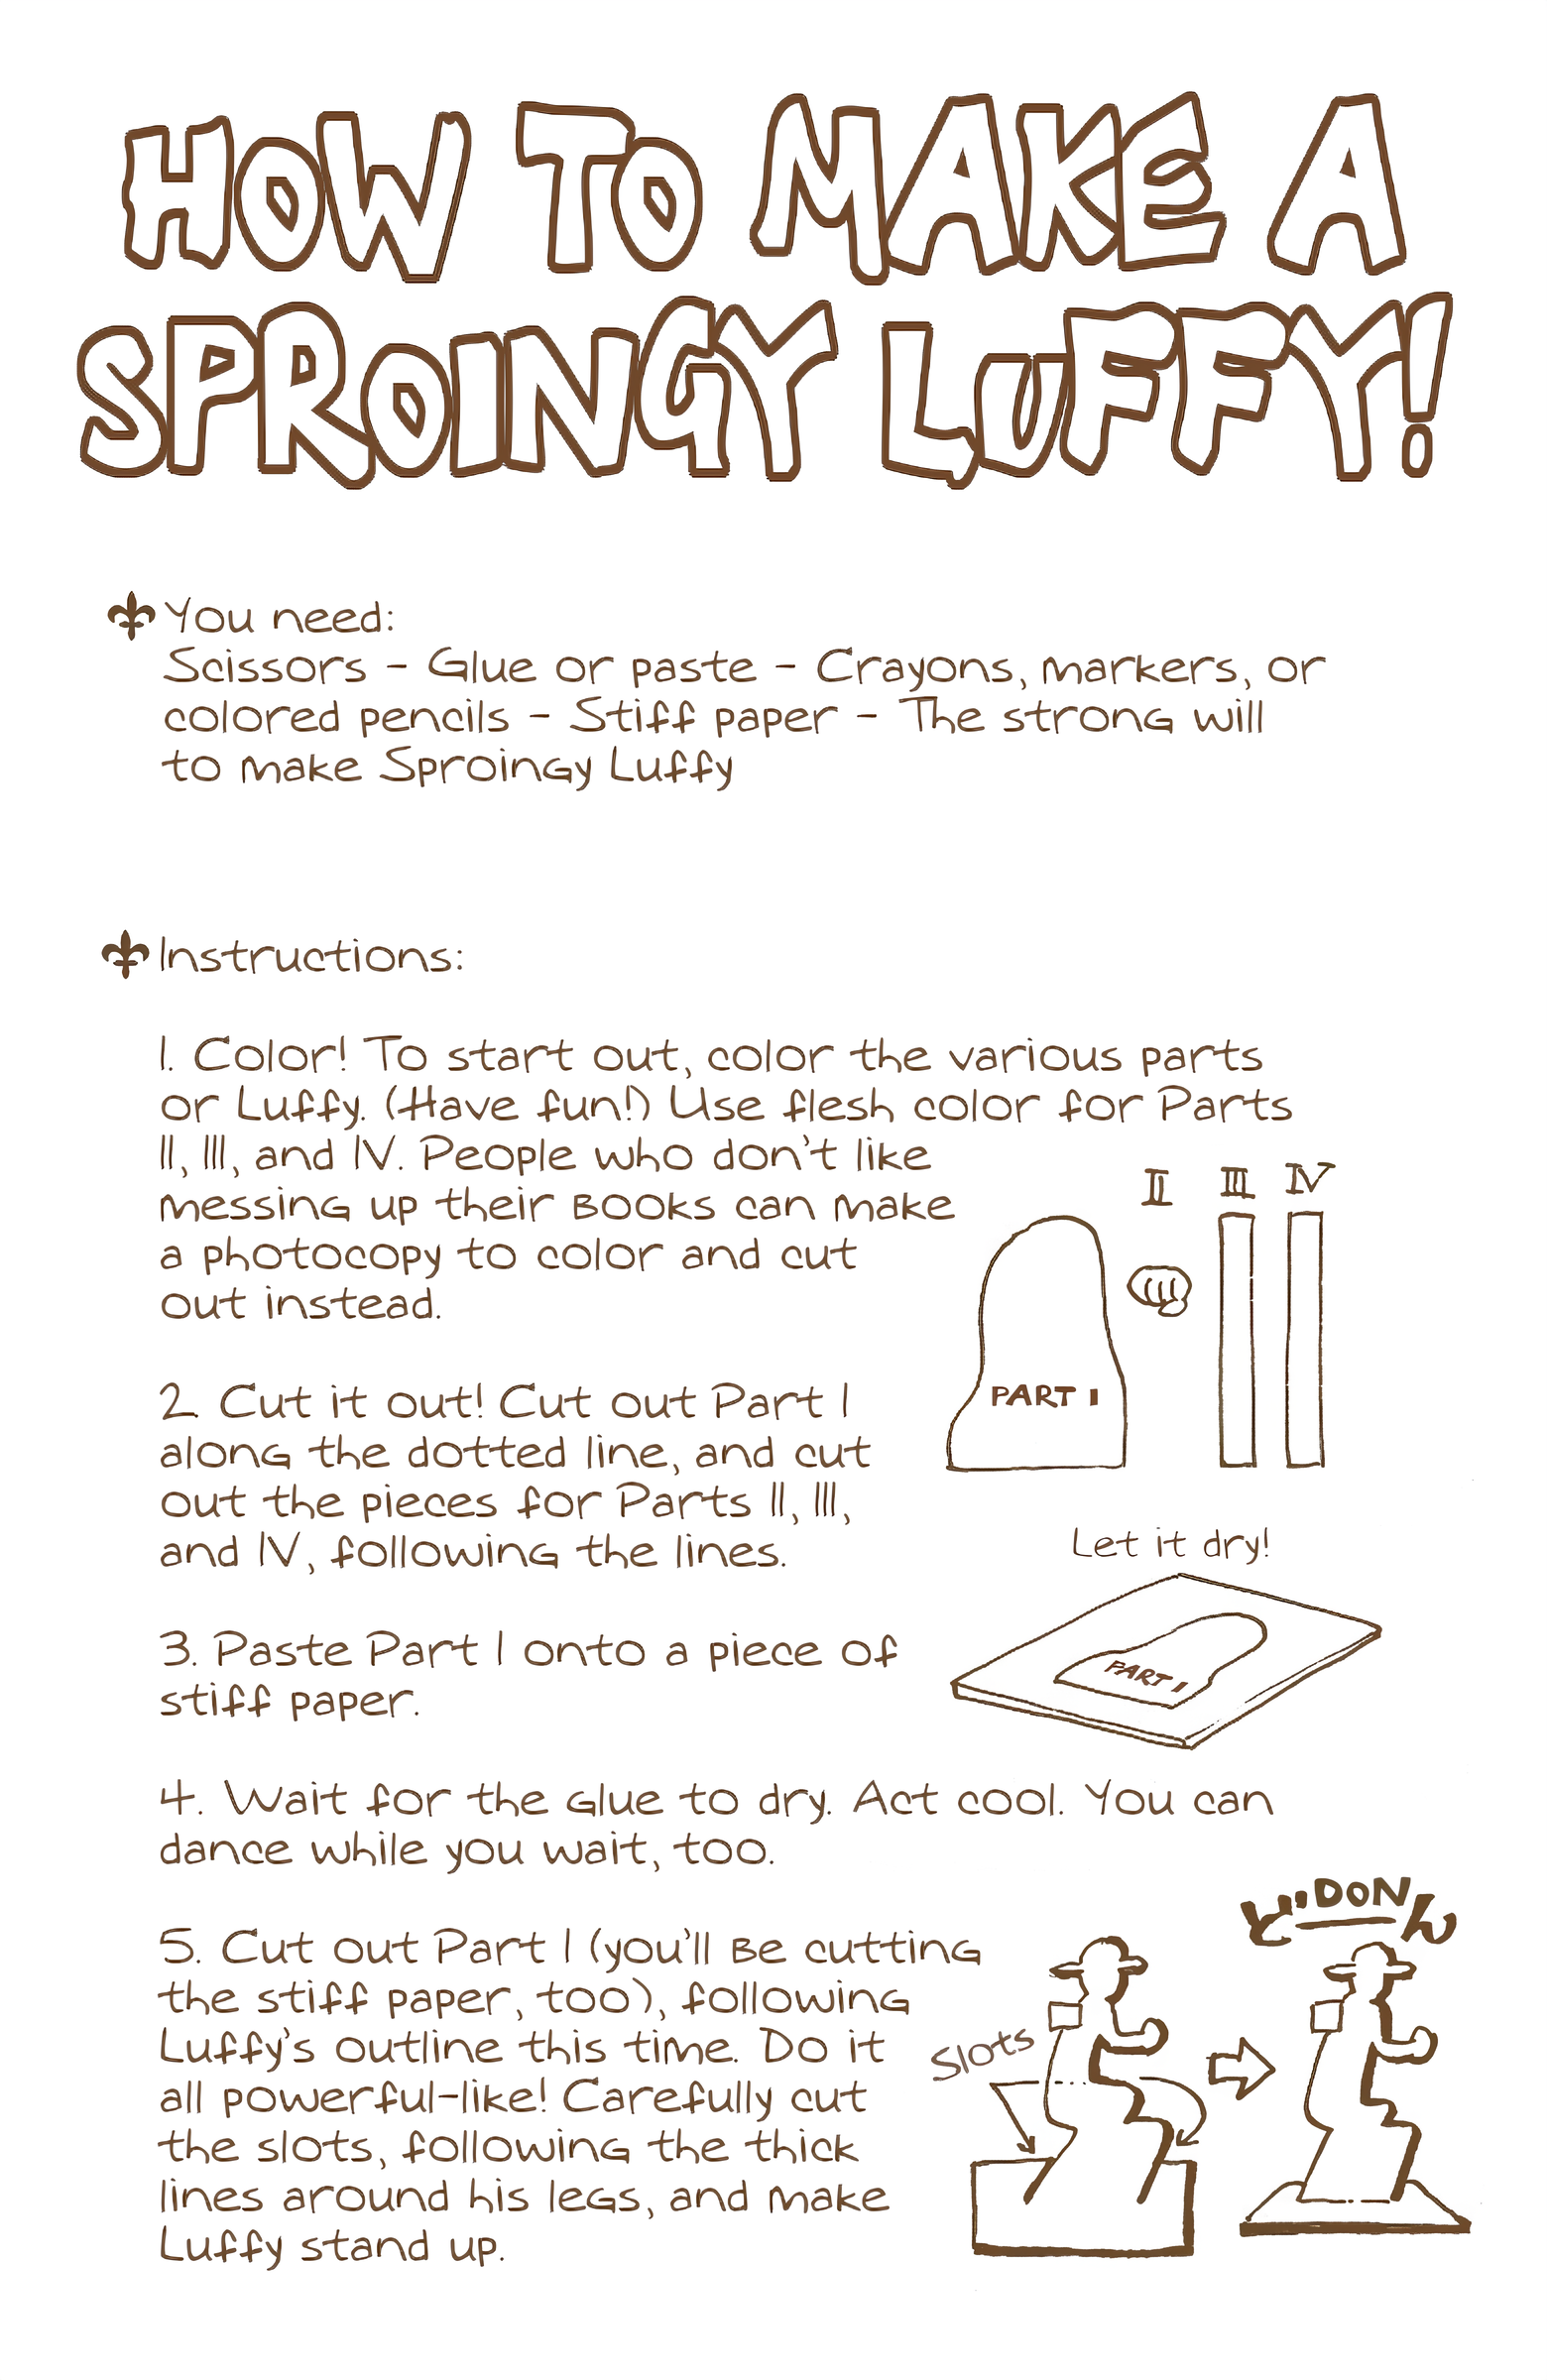 HOW TO MAKE A
SPROINGY LUFFY!
You need:
Scissors - Glue or paste - Crayons, markers, or
colored pencils - Stiff paper - The strong will
to make Sproingy Luffy
Instructions:
1. Color! To start out, color the various parts
or Luffy. (Have fun!) Use flesh color for Parts
II, III, and IV. People who don't like
messing up their books can make
a photocopy to color and cut
out instead.
II III IV
PART I
2. Cut it out! Cut out Part I
along the dotted line, and cut
out the pieces for Parts II, III,
and IV, following the lines.
Let it dry!
PART I
3. Paste Part I onto a piece of
stiff paper.
4. Wait for the glue to dry. Act cool. You can
dance while you wait, too.
5. Cut out Part I (you'll be cutting
the stiff paper, too), following
Luffy's outline this time. Do it
all powerful-like! Carefully cut
the slots, following the thick
lines around his legs, and make
Luffy stand up.
Slots
ど DON ん